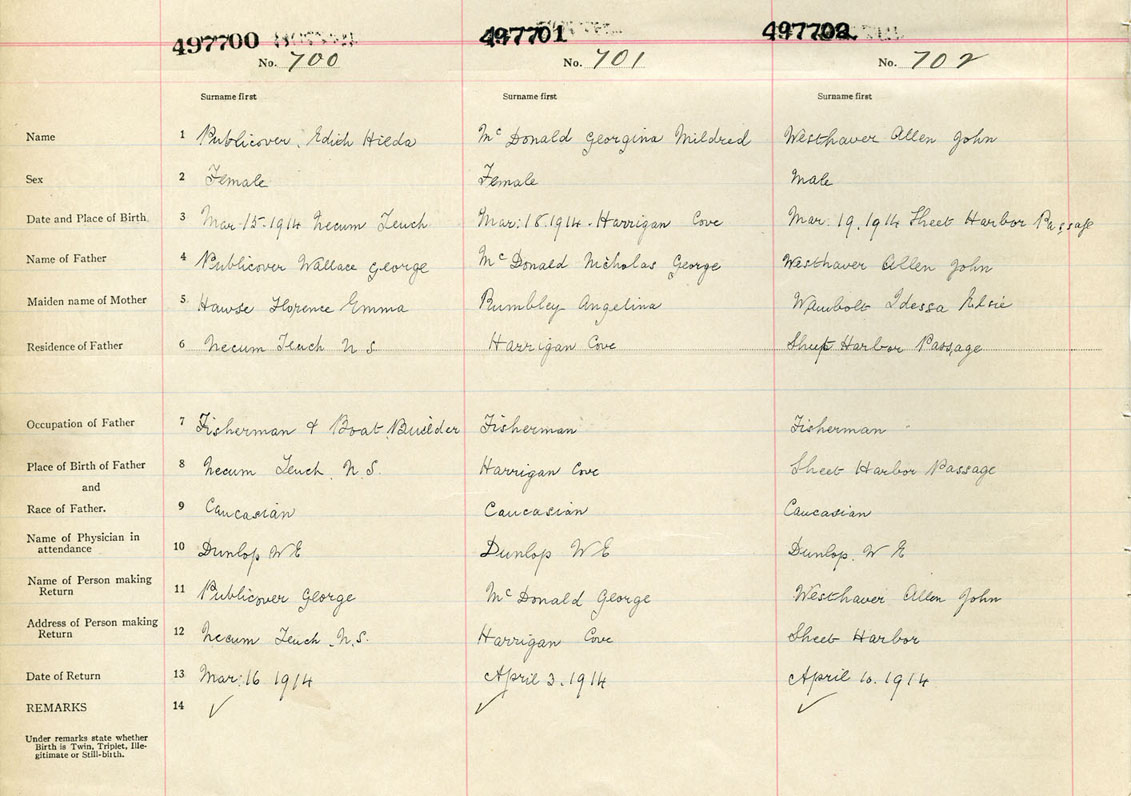 497700 497701 497702
No. 700 No. 701 No. 702
Surname first Surname first Surname first
Name 1 Publicover, Edith Hilda McDonald Georgina Mildred Westhaver Allen John
Sex 2 Female Female Male
Date and Place of Birth 3 Mar. 15. 1914 Necum Teuch Mar. 18. 1914. Harrigan Cove Mar. 19. 1914 Sheet Harbor Passage
Name of Father 4 Publicover Wallace George McDonald Nicholas George Westhaver Allen John
Maiden name of Mother 5 Hawse Florence Emma Rumbley Angelina Wambolt Idessa Elsie
Residence of Father 6 Necum Teuch N S Harrigan Cove Sheet Harbor Passage
Occupation of Father 7 Fisherman & Boat Builder Fisherman Fisherman
Place of Birth of Father 8 Necum Teuch N. S. Harrigan Cove Sheet Harbor Passage
and
Race of Father. 9 Caucasian Caucasian Caucasian
Name of Physician in
attendance 10 Dunlop W E Dunlop W E Dunlop. W E
Name of Person making
Return 11 Publicover George McDonald George Westhaver Allen John
Address of Person making
Return 12 Necum Teuch. N. S. Harrigan Cove Sheet Harbor
Date of Return 13 Mar. 16 1914 April 3. 1914 April 10. 1914
REMARKS 14 ✓ ✓ ✓
Under remarks state whether
Birth is Twin, Triplet, Ille-
gitimate or Still-birth.